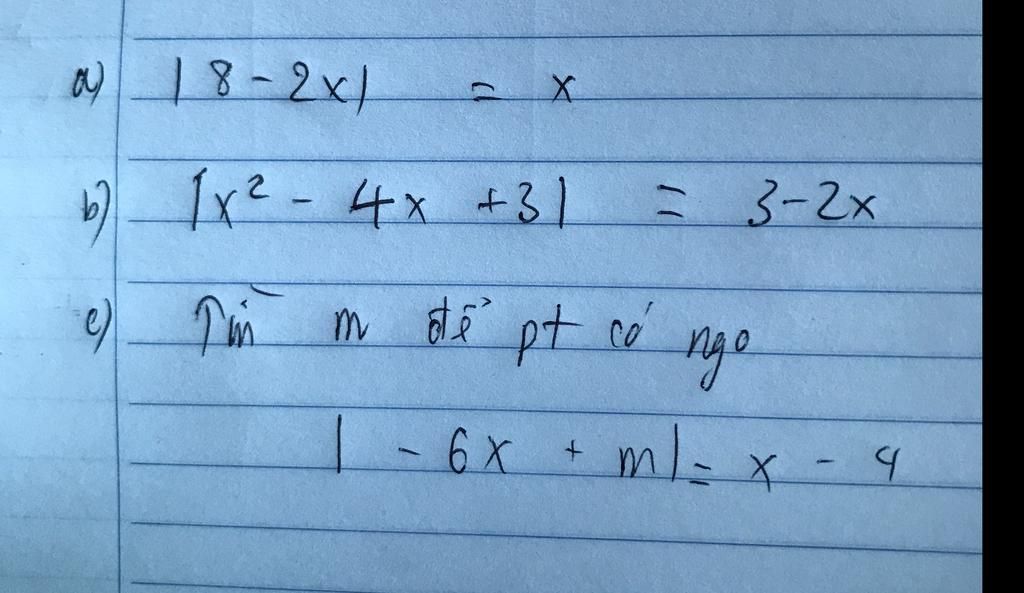 a) |8-2x| = x
b) |x² - 4x +3| = 3-2x
c) Tìm m để pt có ngo
|-6x + m| = x - 4